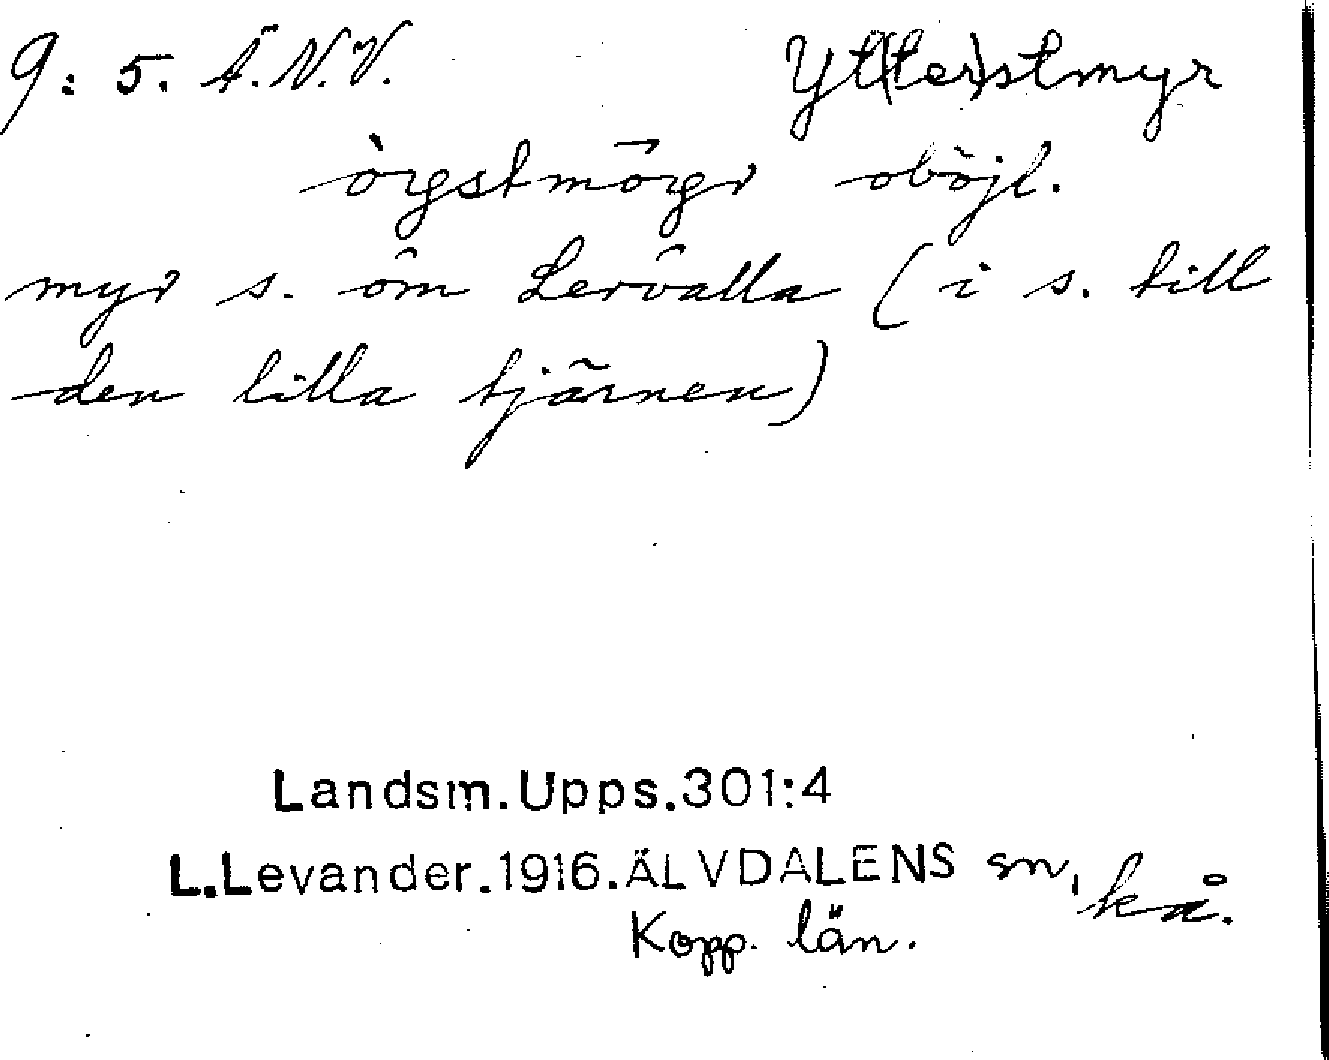 9: 5. Ä.N.V. Yt(ter)stmyr
oböjl.
myr s. om Lervalla (i s. till
den lilla tjärnen)
Landsm.Upps.301:4
L.Levander.1916.ÄLVDALENS sn, kå.
Kopp. län.